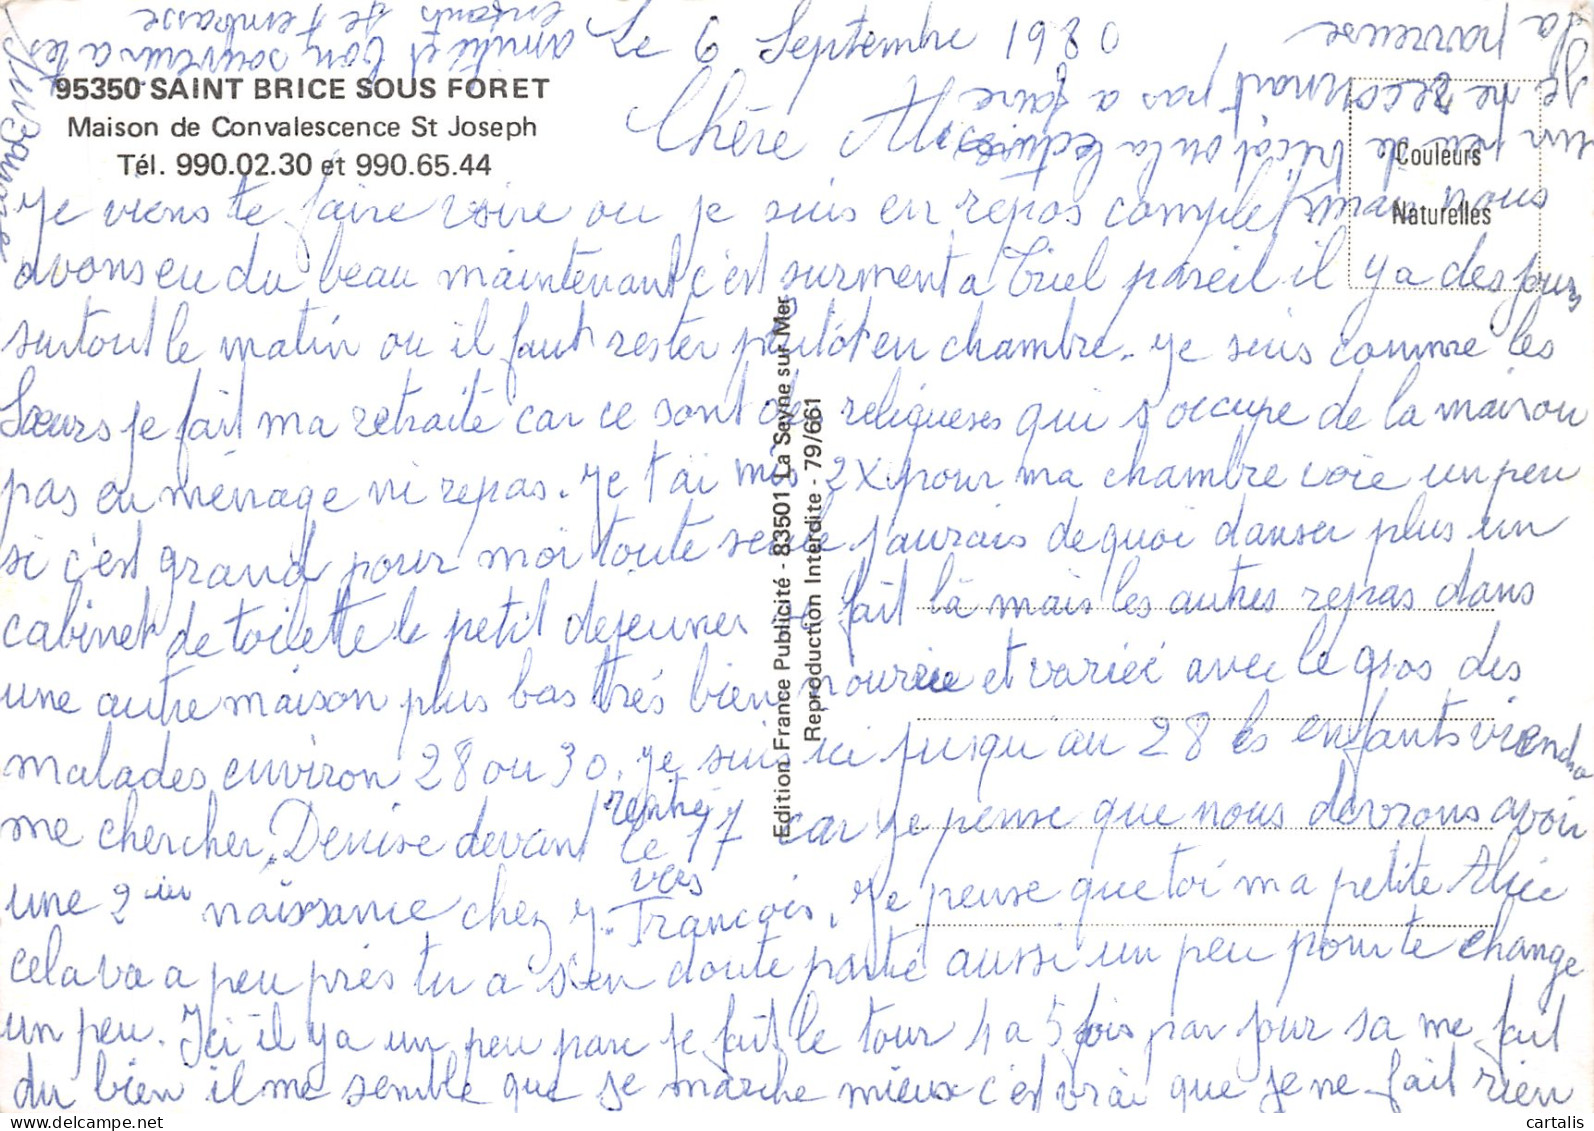 Le 6 Septembre 1980
95350 SAINT BRICE SOUS FORET
Maison de Convalescence St Joseph
Tél. 990.02.30 et 990.65.44
Couleurs
Naturelles
Chère Alice
Je viens te faire voire ou je suis en repos complet mais nous
avons eu du beau maintenant c'est surment a Triel pareil il y a des jours
surtout le matin ou il faut rester plutôt en chambre. Je suis comme les
Sœurs je fait ma retraite car ce sont des religieuses qui s'occupe de la maison
pas en ménage ni repas. Je t'ai mis 2 X pour ma chambre voie un peu
si c'est grand pour moi toute seule j'aurais de quoi danser plus un
cabinet de toilette le petit dejeuner se fait là mais les autres repas dans
une autre maison plus bas très bien nourrie et variée avec le gros des
malades environ 28 ou 30. Je suis ici jusqu'au 28 les enfants viendra
me chercher. Denise devant rentré le 17 car je pense que nous devrons avoir
vers
une 2ieu naissance chez J. François. Je pense que toi ma petite Alice
cela va a peu près tu a s'en doute partie aussi un peu pour te change
un peu. Ici il y a un peu parc je fait le tour 4 a 5 fois par jour sa me fait
du bien il me semble que je marche mieux c'est vrai que je ne fait rien
un peu de tricot ou la lecture
Je ne reconnait pas a faire
La parreuse
amitié et bon souvenir a tes
enfants je t'embrasse
Edition France Publicité - 83501 La Seyne sur Mer
Reproduction Interdite - 79/661
cartalis